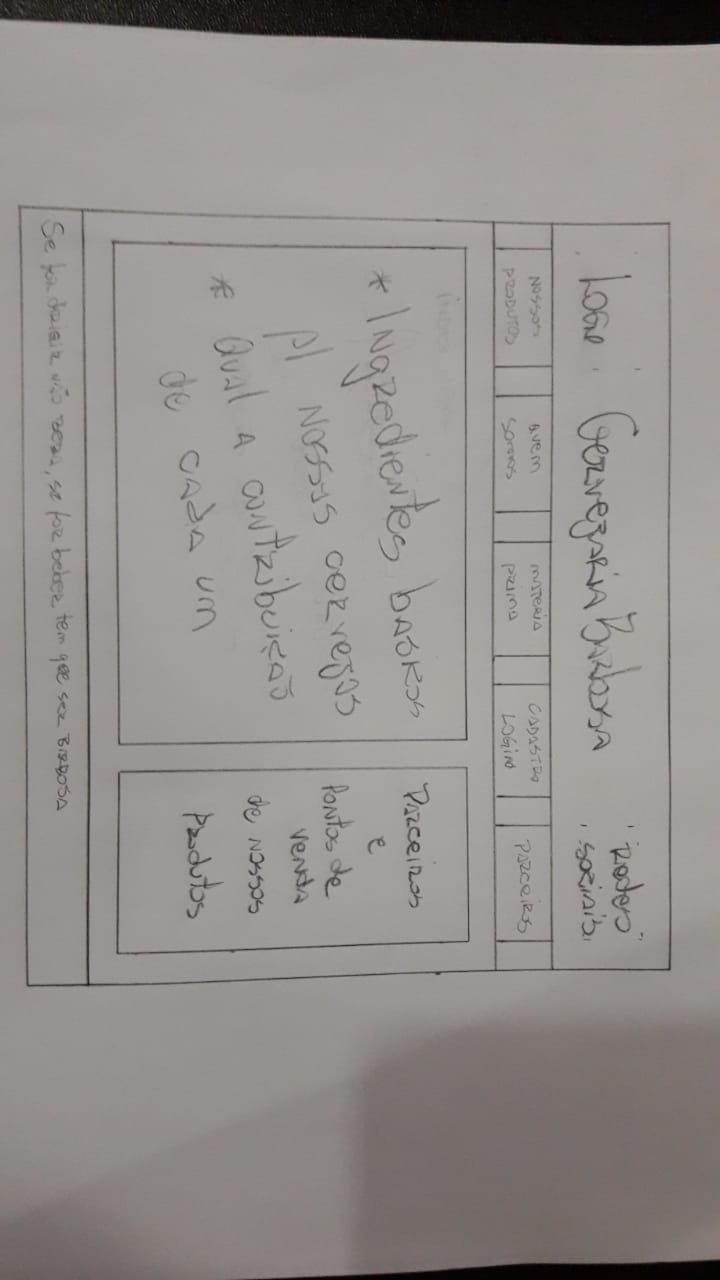 Logo
Cervejaria Barbosa
Redes
sociais
NOSSOS
PRODUTOS
QUEM
SOMOS
MATERIA
PRIMA
CADASTRO
LOGIN
PARCEIROS
* Ingredientes basicos
p/ NOSSAS cervejas
* Qual A contribuição
de cada um
Parceiros
e
Pontos de
venda
de NOSSOS
Produtos
Se for dirigir não beba, se for beber tem que ser BARBOSA